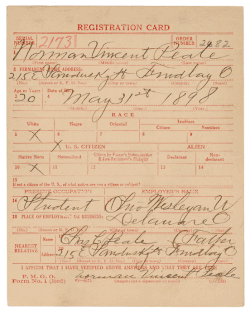 REGISTRATION CARD
SERIAL NUMBER 2173 ORDER NUMBER 2682
Norman Vincent Peale
2 PERMANENT HOME ADDRESS:
215 E Sandusky St Findlay O
Age in Years
20 May 31st 1898
RACE
White Negro Oriental Indian
Citizen Noncitizen
X
U. S. CITIZEN ALIEN
Native Born Naturalized Declarant Non-declarant
X
PRESENT OCCUPATION EMPLOYER'S NAME
Student Ohio Wesleyan U
18 PLACE OF EMPLOYMENT OR BUSINESS:
Delaware O
NEAREST RELATIVE
Chas C Peale Father
215 E Sandusky St Findlay O
I AFFIRM THAT I HAVE VERIFIED ABOVE ANSWERS AND THAT THEY ARE TRUE
P. M. G. O.
Form No. 1 (Red) Norman Vincent Peale